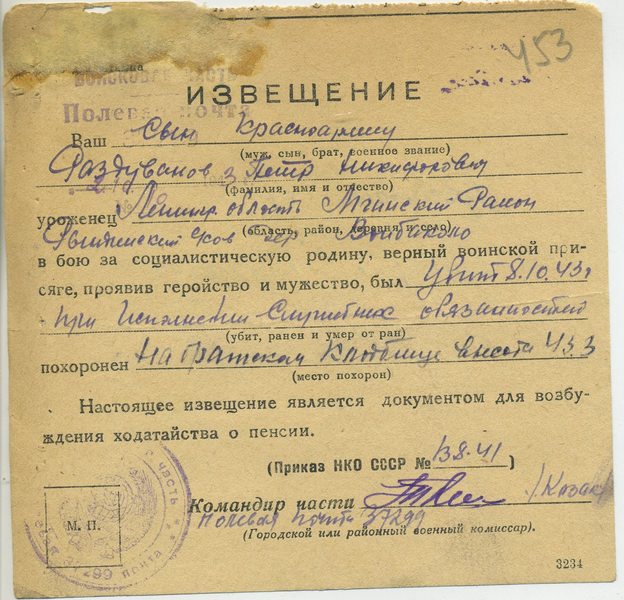 453
ВОЙСКОВАЯ ЧАСТЬ
Полевая почта
ИЗВЕЩЕНИЕ
Ваш сын красноармеец
(муж, сын, брат, военное звание)
Раздуванов Петр Никифорович
(фамилия, имя и отчество)
уроженец Ленингр. область Мгинский Район
(область, район, деревня и село)
дер Войбокало
в бою за социалистическую родину, верный воинской при-
сяге, проявив геройство и мужество, был Убит 8.10.43г
при исполнении Служебных обязанностей
(убит, ранен и умер от ран)
похоронен На братском кладбище высота 43.3
(место похорон)
Настоящее извещение является документом для возбу-
ждения ходатайства о пенсии.
(Приказ НКО СССР № 138-41)
Командир части /Казак/
полевая почта 37299
(Городской или районный военный комиссар).
М. П.
3234